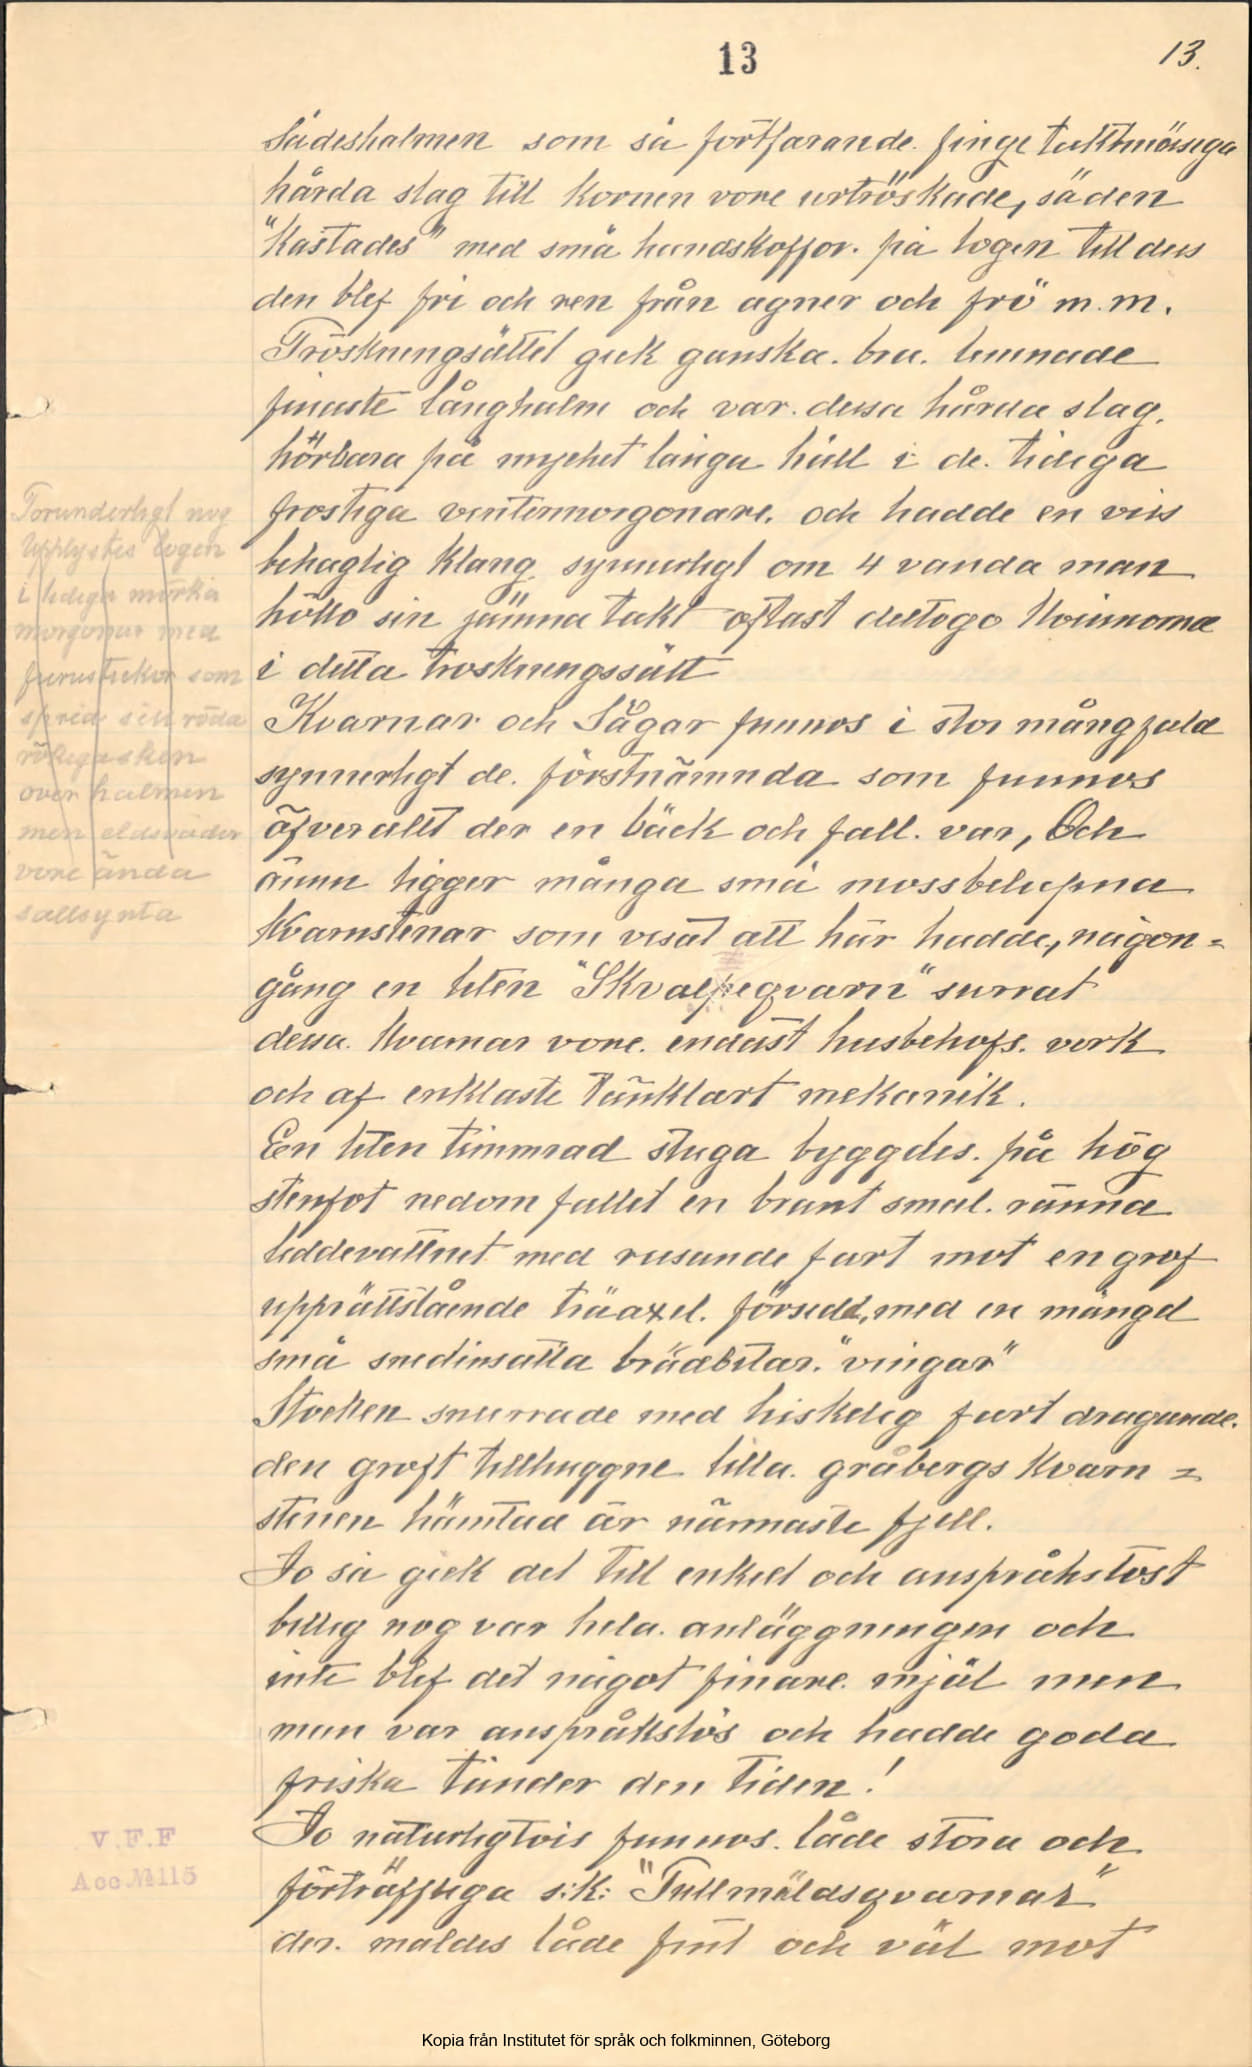 13
13.
Sädeshalmen som så fortfarande finge taktmässiga
hårda slag till kornen vore urtröskade, säden
"Kastades" med små handskofflor på logen till dess
den blef fri och ren från agner och frö m.m.
Tröskningsättet gick ganska bra lemnade
finaste långhalm och var dessa hårda slag
hörbara på mycket långa håll i de tidiga
frostiga vintermorgonare. och hadde en viss
behaglig klang synnerligt om 4 vanda man
höllo sin jämna takt oftast deltogo Kvinnorna
i detta troskningssätt
Kvarnar och Sågar funnos i stor mångfald
synnerligt de förstnämnda som funnos
öfverallt der en bäck och fall var, Och
ännu ligger många små mossbelupna
Kvarnstenar som visat att här hadde, någon=
gång en liten "Skvalpeqvarn" surrat
dessa Kvarnar vore endast husbehofs verk
och af enklaste tänkbart mekanik.
En liten timmrad stuga byggdes på hög
stenfot nedom fallet en brant smal ränna
leddevattnet med rusande fart mot en grof
upprättstående träaxel försedd, med en mängd
små snedinsatta brädbitar "vingar"
Stocken snurrade med hiskelig fart dragande
den groft tillhuggne lilla gråbergs Kvarn=
stenen hämtad är närmaste fjell.
Jo så gick det till enkelt och anspråkslöst
billig nog var hela anläggningen och
inte blef det något finare mjöl men
man var anspråkslös och hadde goda
friska tänder den tiden!
Jo naturligtvis funnos både stora och
förträffliga s:k: "Tullmäldsqvarnar"
der maldes både fint och väl mot
Förunderligt nog
Upplystes logen
i tidiga mörka
morgonar med
furustickor som
spred sitt röda
rökiga sken
över halmen
men eldsvådor
vore ända
sällsynta
V.F.F
Acc.№115
Kopia från Institutet för språk och folkminnen, Göteborg